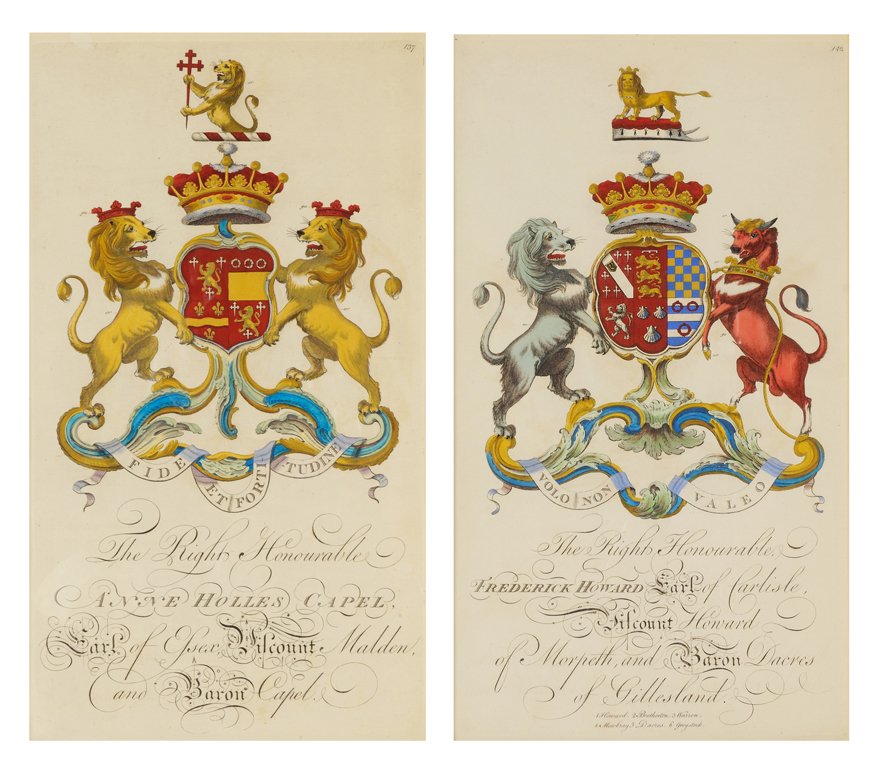 137
FIDE ET FORTITUDINE
The Right Honourable
ANNE HOLLES CAPEL,
Earl of Essex, Viscount Malden,
and Baron Capel.
VOLO NON VALEO
The Right Honourable
FREDERICK HOWARD Earl of Carlisle,
Viscount Howard
of Morpeth, and Baron Dacres
of Gillesland.
1 Howard. 2 Brotherton. 3 Warren.
4 Mowbray 5 Dacres. 6 Greystock.